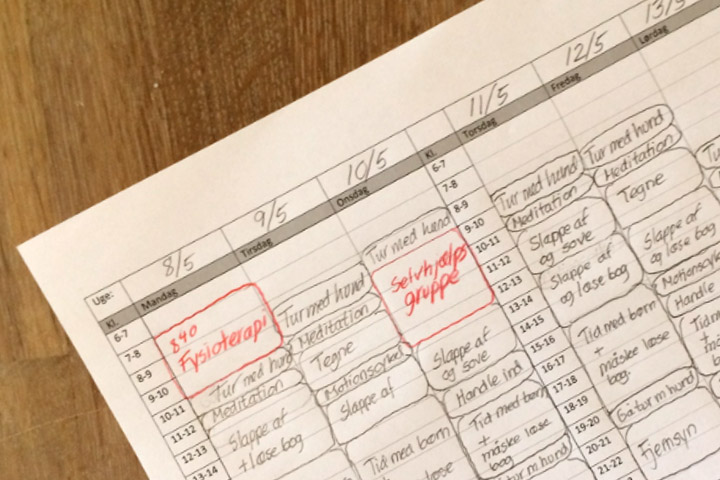 Uge:
8/5
9/5
10/5
11/5
12/5
13/5
Kl.
Mandag
Tirsdag
Onsdag
Kl.
Torsdag
Fredag
Lørdag
6-7
7-8
8-9
9-10
10-11
11-12
12-13
13-14
840
Fysioterapi
Tur med hund
Meditation
Slappe af
+ læse bog
Tur med hund
Meditation
Tegne
Motionscykel
Slappe af
Tur med hund
Selvhjælps
gruppe
Slappe af
og sove
Handle ind
Tid med børn
+
måske læse
bog
Tid med børn
læse
6-7
7-8
8-9
9-10
10-11
11-12
12-13
13-14
14-15
15-16
16-17
17-18
18-19
19-20
20-21
21-22
Tur med hund
Meditation
Slappe af
og sove
Slappe af
og læse bog
Tid med børn
+
måske læse
bog.
Gå tur m hund
Fjernsyn
Tur med hund
Meditation
Tegne
Slappe af
og læse bog
Handle